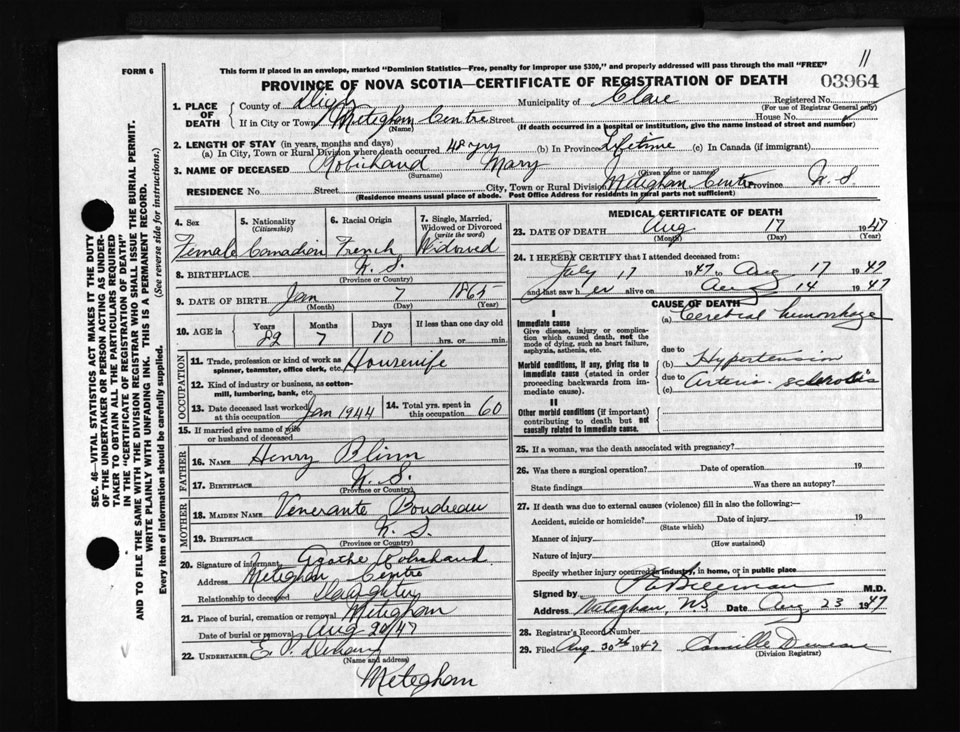 11
FORM 6
This form if placed in an envelope, marked "Dominion Statistics—Free, penalty for improper use $300," and properly addressed will pass through the mail "FREE"
PROVINCE OF NOVA SCOTIA—CERTIFICATE OF REGISTRATION OF DEATH
03964
1. PLACE OF DEATH County of Digby Municipality of Clare Registered No.
(For use of Registrar General only)
If in City or Town Meteghan Centre Street House No.
(Name) (If death occurred in a hospital or institution, give the name instead of street and number)
2. LENGTH OF STAY (in years, months and days)
(a) In City, Town or Rural Division where death occurred 48 yrs (b) In Province Lifetime (c) In Canada (if immigrant)
3. NAME OF DECEASED Robichaud Mary
(Surname) (Given name or names)
RESIDENCE No. Street City, Town or Rural Division Meteghan Centre Province N.S
(Residence means usual place of abode. Post Office Address for residents in rural parts not sufficient)
4. Sex 5. Nationality (Citizenship) 6. Racial Origin 7. Single, Married, Widowed or Divorced (write the word)
Female Canadian French Widowed
8. BIRTHPLACE N.S.
(Province or Country)
9. DATE OF BIRTH Jan 7 1865
(Month) (Day) (Year)
10. AGE in Years Months Days If less than one day old
7 10 hrs. or min.
OCCUPATION
11. Trade, profession or kind of work as spinner, teamster, office clerk, etc. Housewife
12. Kind of industry or business, as cotton-mill, lumbering, bank, etc.
13. Date deceased last worked at this occupation Jan 1944 14. Total yrs. spent in this occupation 60
15. If married give name of wife or husband of deceased
FATHER
16. NAME Henry Blinn
17. BIRTHPLACE N.S.
(Province or Country)
MOTHER
18. MAIDEN NAME Venerante Boudreau
19. BIRTHPLACE N.S
(Province or Country)
20. Signature of informant Agathe Robichaud
Address Meteghan Centre
Relationship to deceased Daughter
21. Place of burial, cremation or removal Meteghan
Date of burial or removal Aug 20/47
22. UNDERTAKER E.
(Name and address)
Meteghan
MEDICAL CERTIFICATE OF DEATH
23. DATE OF DEATH Aug 17 1947
(Month) (Day) (Year)
24. I HEREBY CERTIFY that I attended deceased from:
July 17 1947 to Aug 17 1947
and last saw her alive on Aug 14 1947
CAUSE OF DEATH
I
Immediate cause
Give disease, injury or complication which caused death, not the mode of dying, such as heart failure, asphyxia, asthenia, etc.
(a) Cerebral hemorrhage
due to
Morbid conditions, if any, giving rise to immediate cause (stated in order proceeding backwards from immediate cause).
(b) Hypertension
due to
(c) Arterio-sclerosis
II
Other morbid conditions (if important) contributing to death but not causally related to immediate cause.
25. If a woman, was the death associated with pregnancy?
26. Was there a surgical operation? Date of operation 19
State findings Was there an autopsy?
27. If death was due to external causes (violence) fill in also the following:
Accident, suicide or homicide? Date of injury 19
(State which)
Manner of injury
(How sustained)
Nature of injury
Specify whether injury occurred in industry, in home, or in public place
Signed by M.D.
Address Meteghan, NS Date Aug 23 1947
28. Registrar's Record Number
29. Filed Aug. 30th 1947 Camille
(Division Registrar)
SEC. 46—VITAL STATISTICS ACT MAKES IT THE DUTY
OF THE UNDERTAKER OR PERSON ACTING AS UNDER-
TAKER TO OBTAIN ALL THE PARTICULARS REQUIRED
IN THE "CERTIFICATE OF REGISTRATION OF DEATH"
AND TO FILE THE SAME WITH THE DIVISION REGISTRAR WHO SHALL ISSUE THE BURIAL PERMIT.
WRITE PLAINLY WITH UNFADING INK. THIS IS A PERMANENT RECORD.
Every item of information should be carefully supplied. (See reverse side for instructions.)